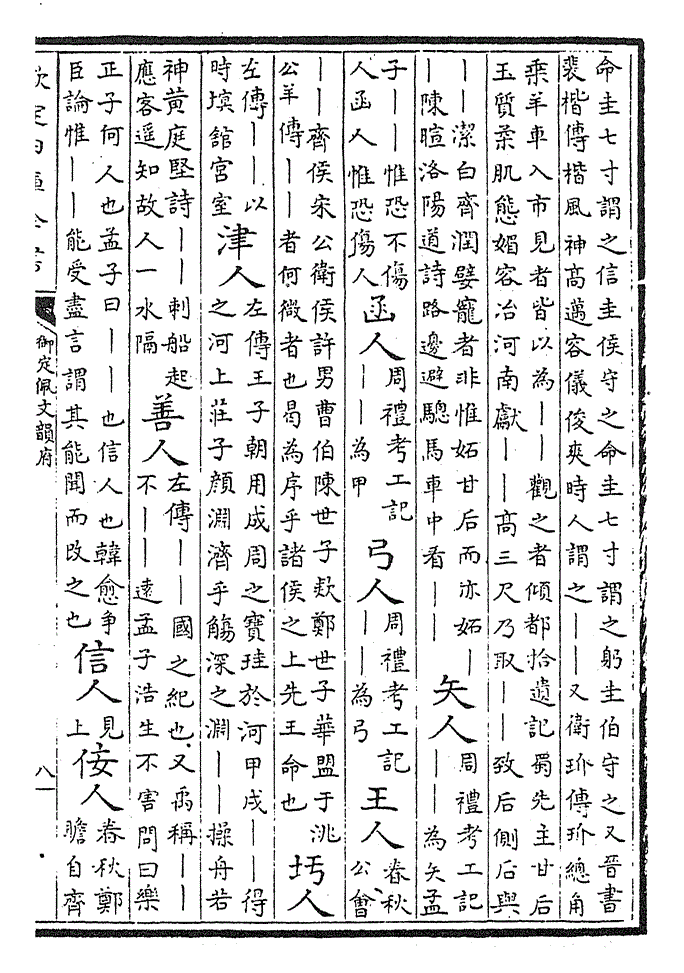 命圭七寸謂之信圭侯守之命圭七寸謂之躬圭伯守之又晉書
裴楷傳楷風神高邁容儀俊爽時人謂之——又衛玠傳玠總角
乗羊車入市見者皆以為——觀之者傾都拾遺記蜀先主甘后
玉質柔肌態媚容冶河南獻——髙三尺乃取——致后側后與
——潔白齊潤嬖寵者非惟妬甘后而亦妬—
—陳暄洛陽道詩路邊避驄馬車中看——
矢人
周禮考工記
——為矢孟
子——惟恐不傷
人函人惟恐傷人
函人
周禮考工記
——為甲
弓人
周禮考工記
——為弓
王人
春秋
公會
——齊侯宋公衛侯許男曹伯陳世子欵鄭世子華盟于洮
公羊傳——者何微者也曷為序乎諸侯之上先王命也
圬人
左傳——以
時塓館宫室
津人
左傳王子朝用成周之寶珪於河甲戌——得
之河上莊子顔淵濟乎觴深之淵——操舟若
神黄庭堅詩——刺船起
應客遥知故人一水隔
善人
左傳——國之紀也又禹稱——
不——逺孟子浩生不害問曰樂
正子何人也孟子曰——也信人也韓愈争
臣論惟——能受盡言謂其能聞而改之也
信人
見
上
佞人
春秋鄭
瞻自齊
欽定四庫全書
御定佩文韻府
八一